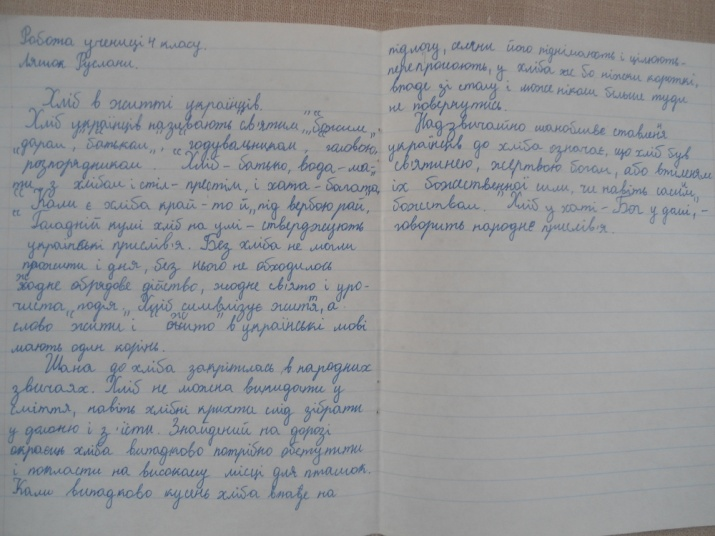 Робота учениці 4 класу.
Ляшок Руслани.
Хліб в житті українців.
Хліб українців називають святим, „божим„
„даром, батьком„, „годувальником, головою,
розпорядником „Хліб - батько, вода - ма-
ти, з хлібом і стіл - престіл, і хата - багата,
„Коли є хліба край - то й, під вербою рай,
Голодній кумі хліб на умі - стверджують
українські прислів'я. Без хліба не могли
прожити і дня, без нього не обходилось
жодне обрядове дійство, жодне свято і уро-
чиста подія. Хліб символізує життя, а
слово жити і „жито" в українські мові
мають один корінь.
Шана до хліба закріпилась в народних
звичаях. Хліб не можна викидати у
сміття, навіть хлібні крихти слід зібрати
у долоню і з'їсти. Знайдений на дорозі
окраєць хліба випадково потрібно обступити
і покласти на високому місці для пташок.
Коли випадково кусень хліба впаде на
підлогу, селяни його піднімають і цілують -
перепрошають, у хліба же бо ніжки короткі,
впаде зі столу і може ніколи більше туди
не повернутись.
Надзвичайно шанобливе ставлення
українців до хліба означає, що хліб був
святинею, жертвою богам, або втіленням
їх божественної сили, чи навіть самим
божеством. „Хліб у хаті - Бог у душі, -
говорить народне прислів'я.